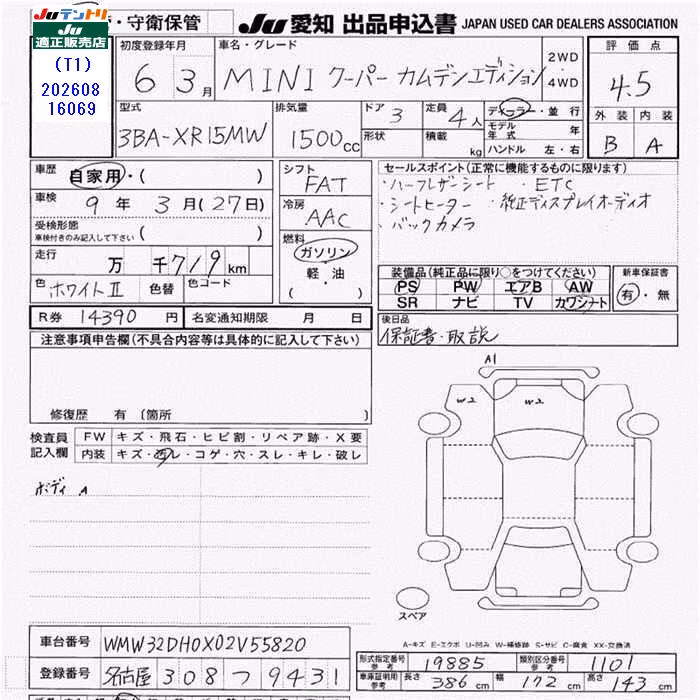 ・守衛保管
JU 愛知 出品申込書 JAPAN USED CAR DEALERS ASSOCIATION
JUテントリ
JU
適正販売店
(T1)
202608
16069
初度登録年月
6 3月
車名・グレード
MINI クーパー カムデンエディション
2WD
・
4WD
評価点
4.5
外装 内装
B A
型式
3BA-XR15MW
排気量
1500cc
ドア 3
形状
定員 4人
積載 kg
ディーラー・並行
モデル年式 年
ハンドル 左・右
車歴 自家用・( )
車検 9年 3月(27日)
受検形態
車検付きのみ記入して下さい ( )
走行 万 千719km
色 ホワイトⅡ 色替 色コード
シフト
FAT
冷房
AAC
燃料
ガソリン
軽・油
( )
セールスポイント(正常に機能するものに限ります)
・ハーフレザーシート ・ETC
・シートヒーター ・純正ディスプレイオーディオ
・バックカメラ
装備品(純正品に限り○をつけてください)
PS PW エアB AW
SR ナビ TV カワシート
新車保証書
有・無
R券 14390円 名変通知期限 月 日
後日品
保証書・取説
注意事項申告欄(不具合内容等は具体的に記入して下さい)
修復歴 有 〔箇所 〕
検査員
記入欄
FW キズ・飛石・ヒビ割・リペア跡・X要
内装 キズ・西レ・コゲ・穴・スレ・キレ・破レ
ボディ A
A1
W2 W2
スペア
A-キズ E-エクボ U-凹み W-補修跡 S-サビ C-腐食 XX-交換済
車台番号 WMW32DH0X02V55820
登録番号 名古屋 308 つ 9431
形式指定番号
参考 19885
類別区分番号
参考 1101
車庫証明用
参考 長さ 386cm 幅 172cm 高さ 143cm